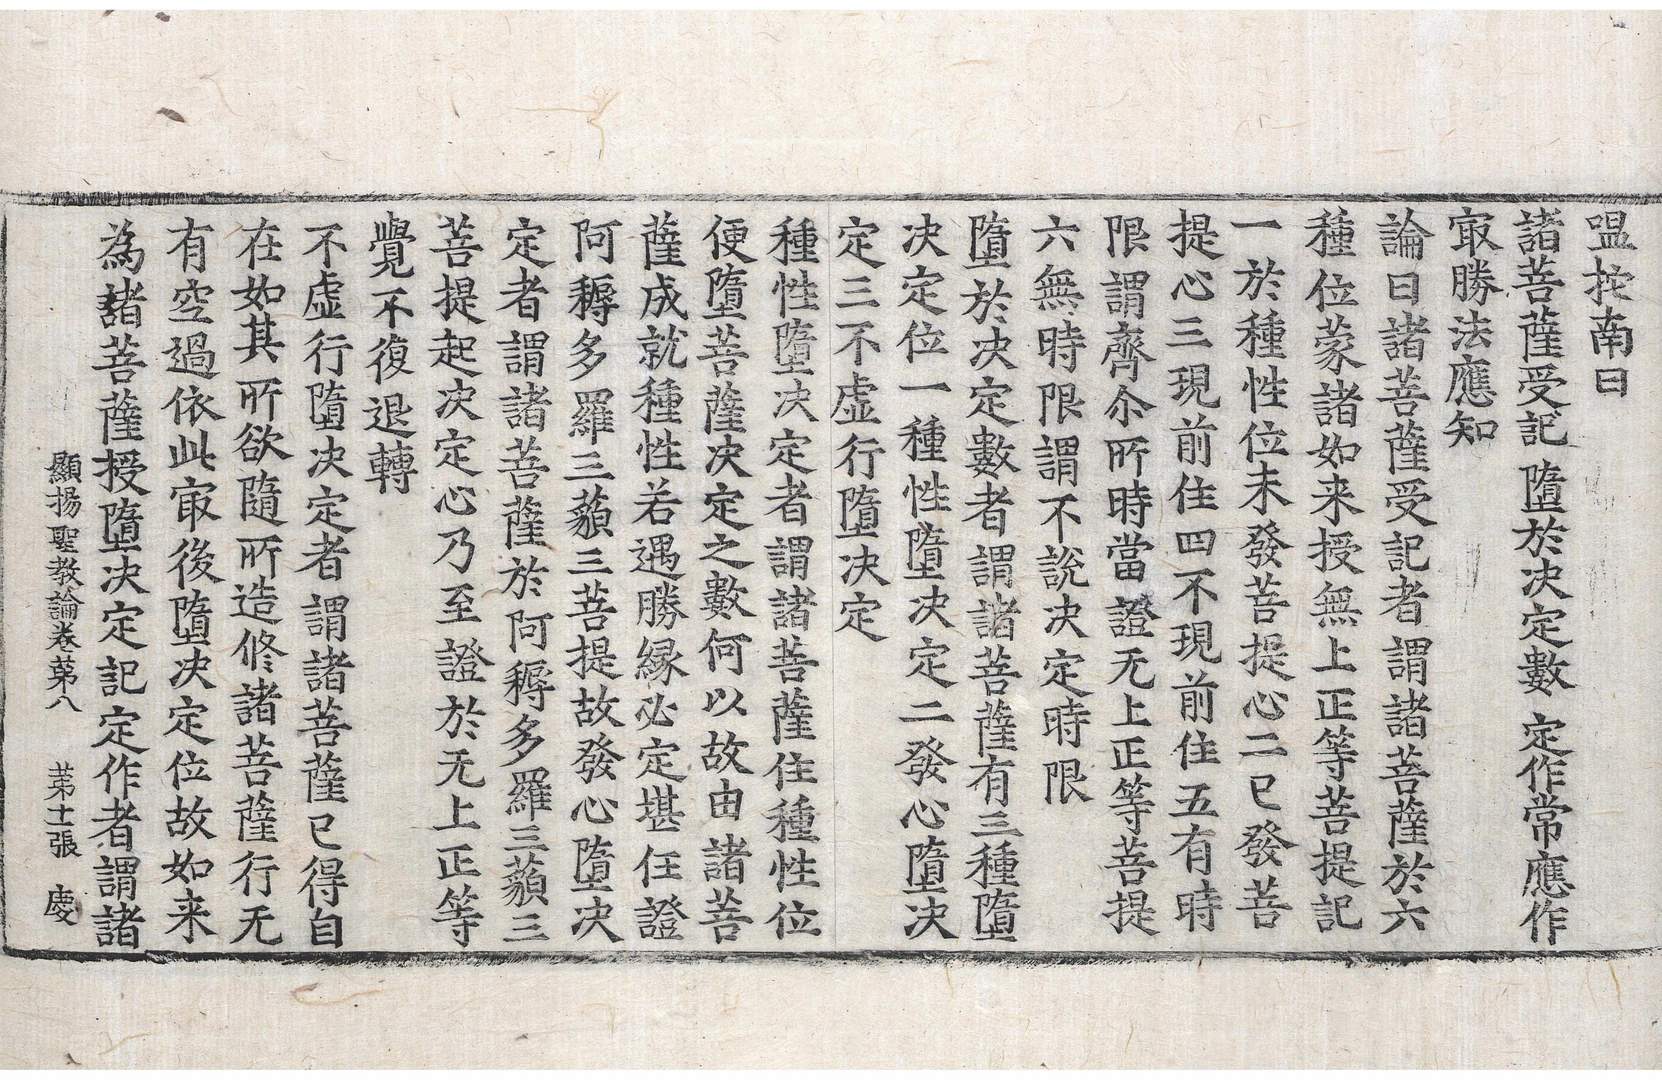 嗢拕南曰
諸菩薩受記 墮於决定數 定作常應作
㝡勝法應知
論曰諸菩薩受記者謂諸菩薩於六
種位蒙諸如来授無上正等菩提記
一於種性位未發菩提心二已發菩
提心三現前住四不現前住五有時
限謂齊尒所時當證无上正等菩提
六無時限謂不說决定時限
墮於决定數者謂諸菩薩有三種墮
决定位一種性墮决定二發心墮决
定三不虛行墮决定
種性墮决定者謂諸菩薩住種性位
便墮菩薩决定之數何以故由諸菩
薩成就種性若遇勝縁必定堪任證
阿耨多羅三藐三菩提故發心墮决
定者謂諸菩薩於阿耨多羅三藐三
菩提起决定心乃至證於无上正等
覺不復退轉
不虛行墮决定者謂諸菩薩已得自
在如其所欲隨所造修諸菩薩行无
有空過依此㝡後墮决定位故如来
為諸菩薩授墮决定記定作者謂諸
顯揚聖教論卷苐八 苐十張 慶